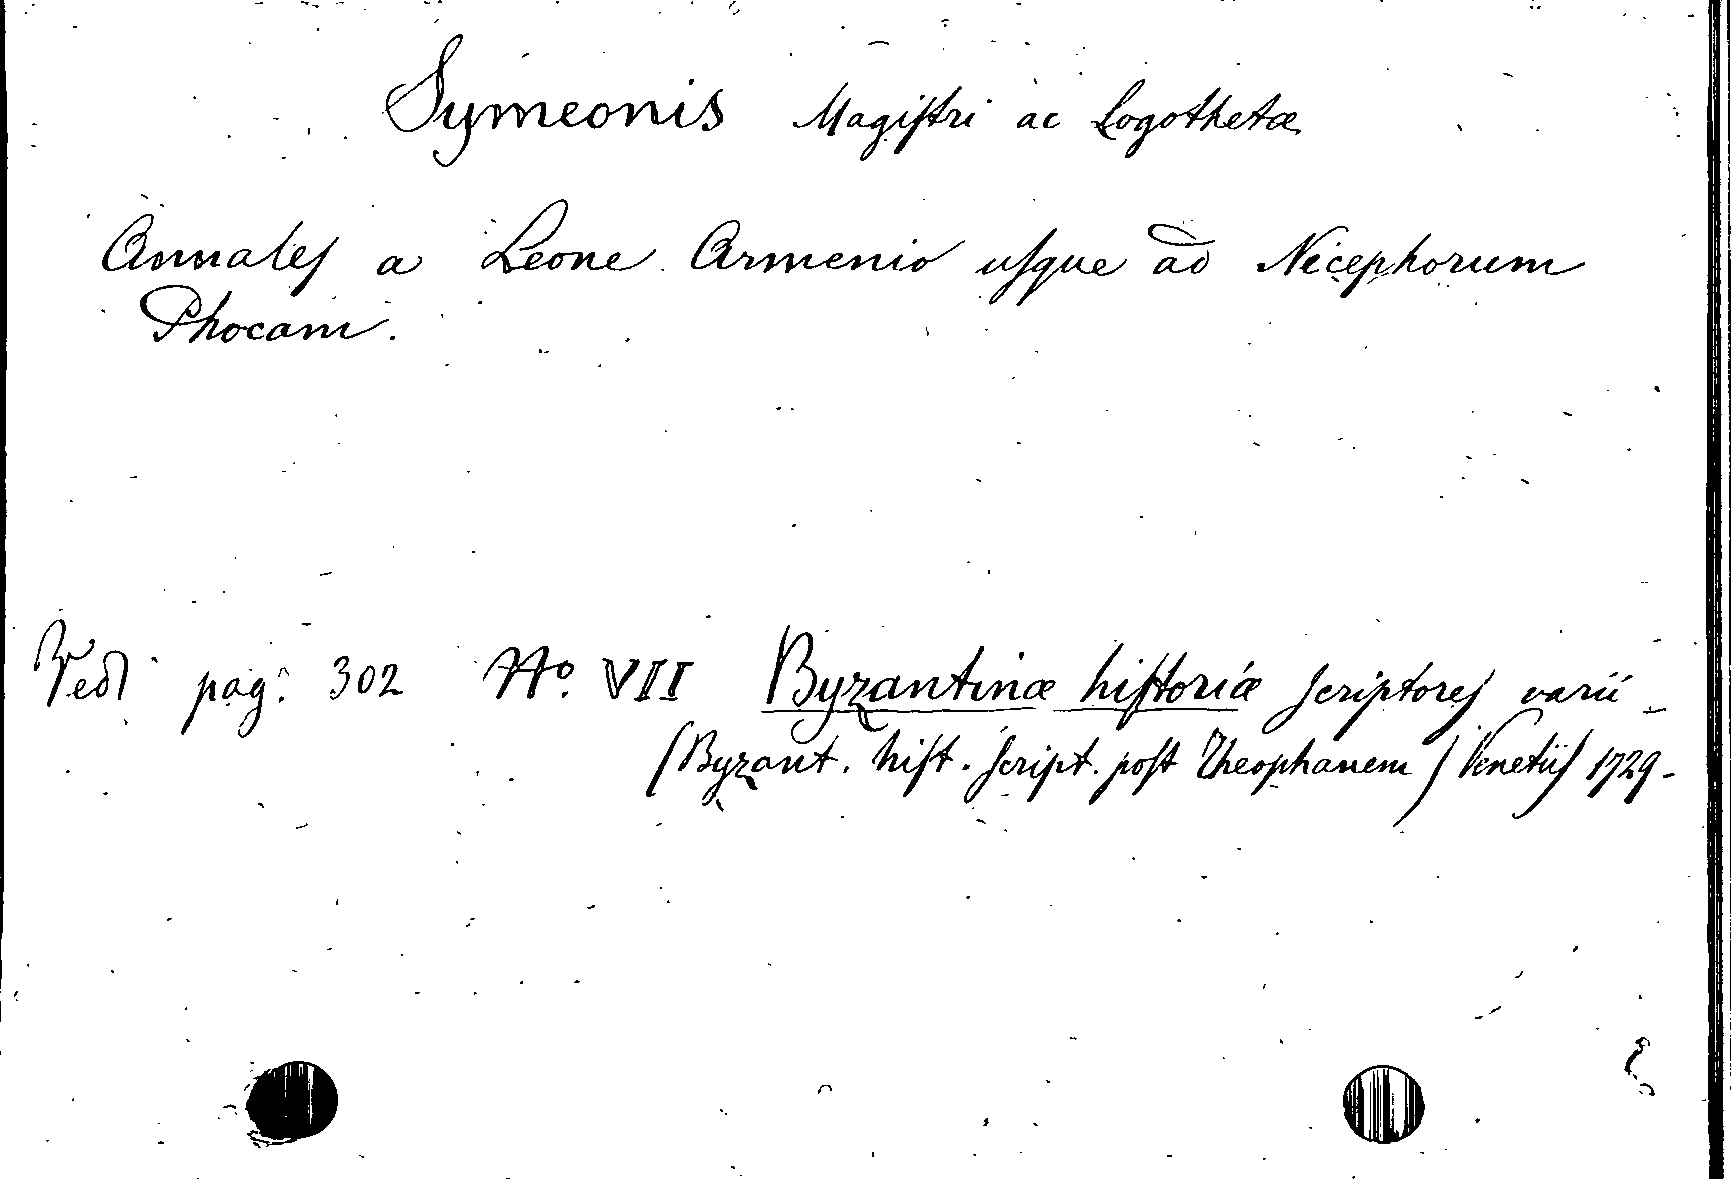 Symeonis Magiſtri ac Logothetæ
Annaleſ a Leone Armenio uſque ad Nicephorum
Phocam.
Vedi pag. 302 No. VII Byzantinæ hiſtoriæ ſcriptoreſ varii –
(Byzant. hiſt. ſcript. poſt Theophanem) Venetiiſ 1729 –